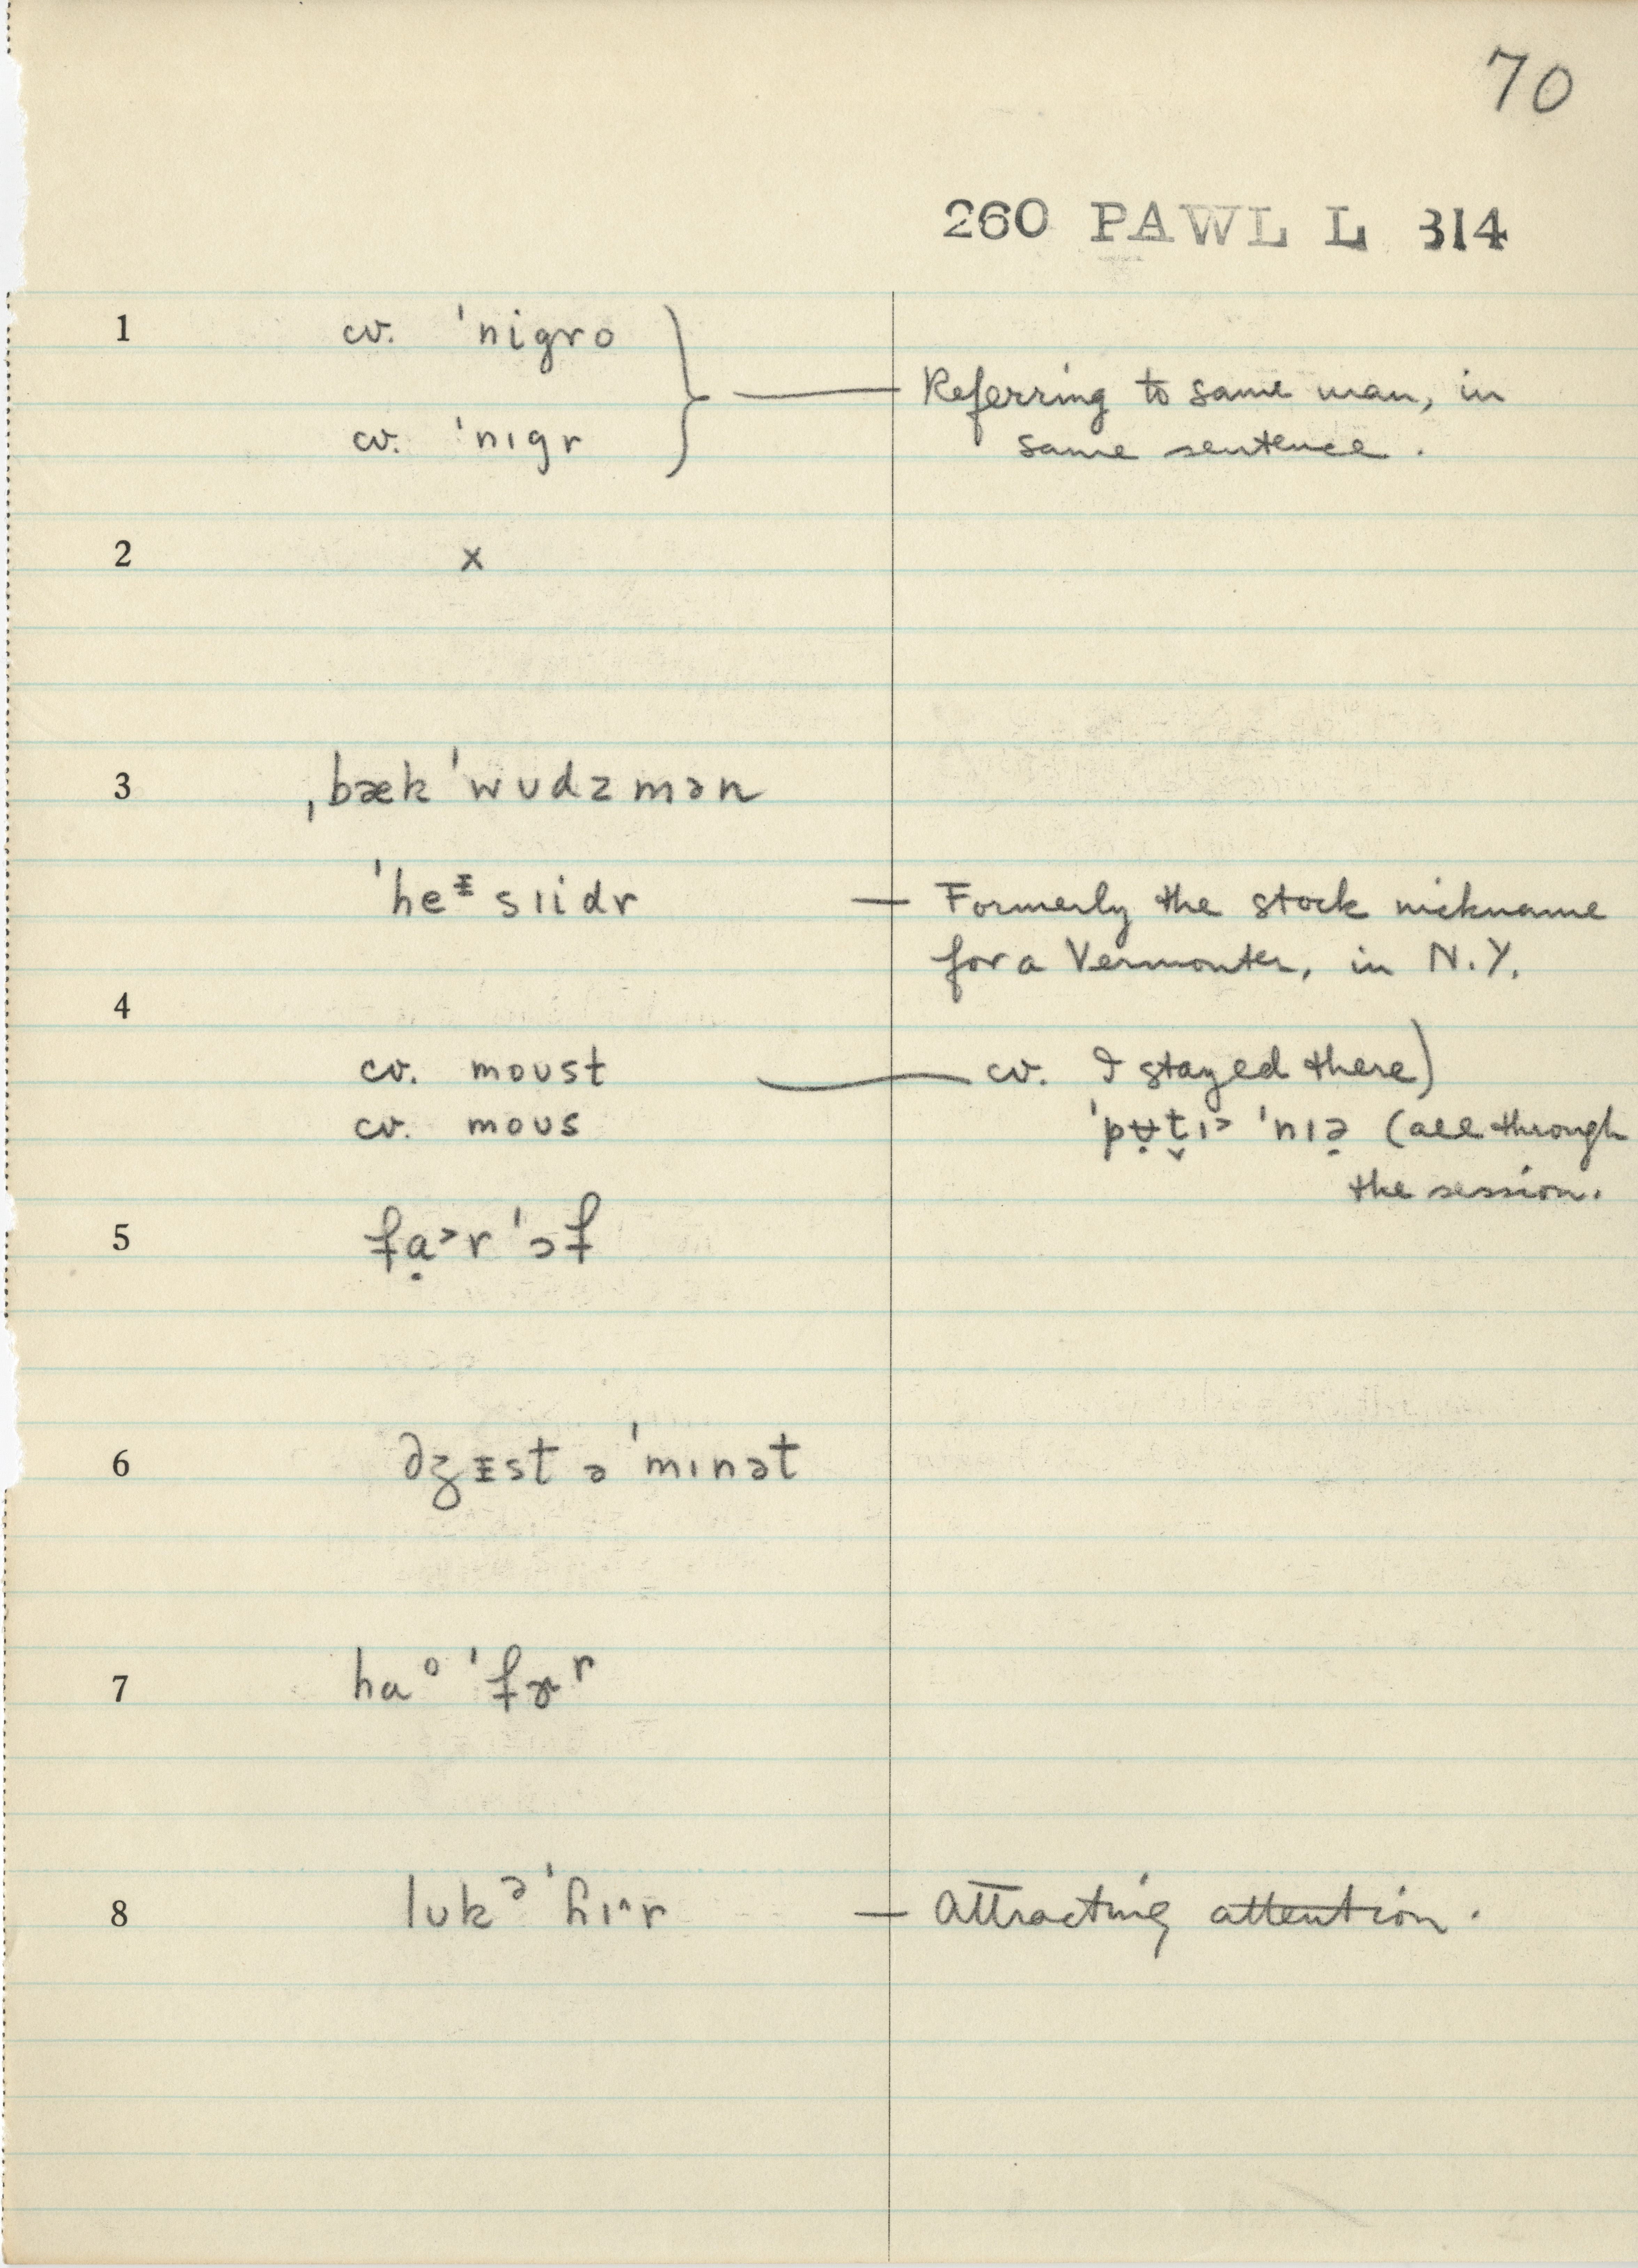 70
260 PAWL L 314
1 cv. ˈnigro
Referring to same man, in
cv. ˈnɪgr
same sentence.
2 x
3 ˌbækˈwʊdzmən
ˈheᵻsiidr — Formerly the stock nickname
for a Vermonter, in N.Y.
4
cv. moʊst — cv. I stayed there)
cv. moʊs ˈpʉ̣t̬ɪ˃ ˈnɪə̣ (all through
the session.
5 fạ˃r ˈɔf
6 dʒᵻst ə ˈmɪnət
7 haᵒ ˈfɚʳ
8 lʊkᵊ ˈɦɪ^r — Attracting attention.